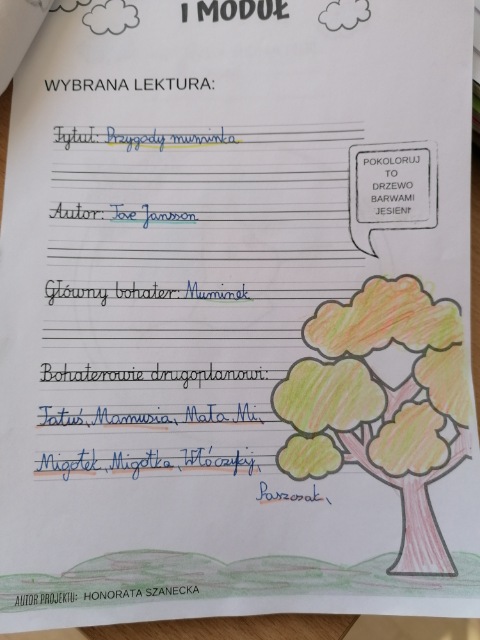 I MODUŁ
WYBRANA LEKTURA:
Tytuł: Przygody muminka
POKOLORUJ
TO
DRZEWO
BARWAMI
JESIENI
Autor: Tove Jansson
Główny bohater: Muminek
Bohaterowie drugoplanowi:
Tatuś, Mamusia, Mała Mi,
Migotek, Migotka, Włóczykij,
Paszczak,
AUTOR PROJEKTU: HONORATA SZANECKA